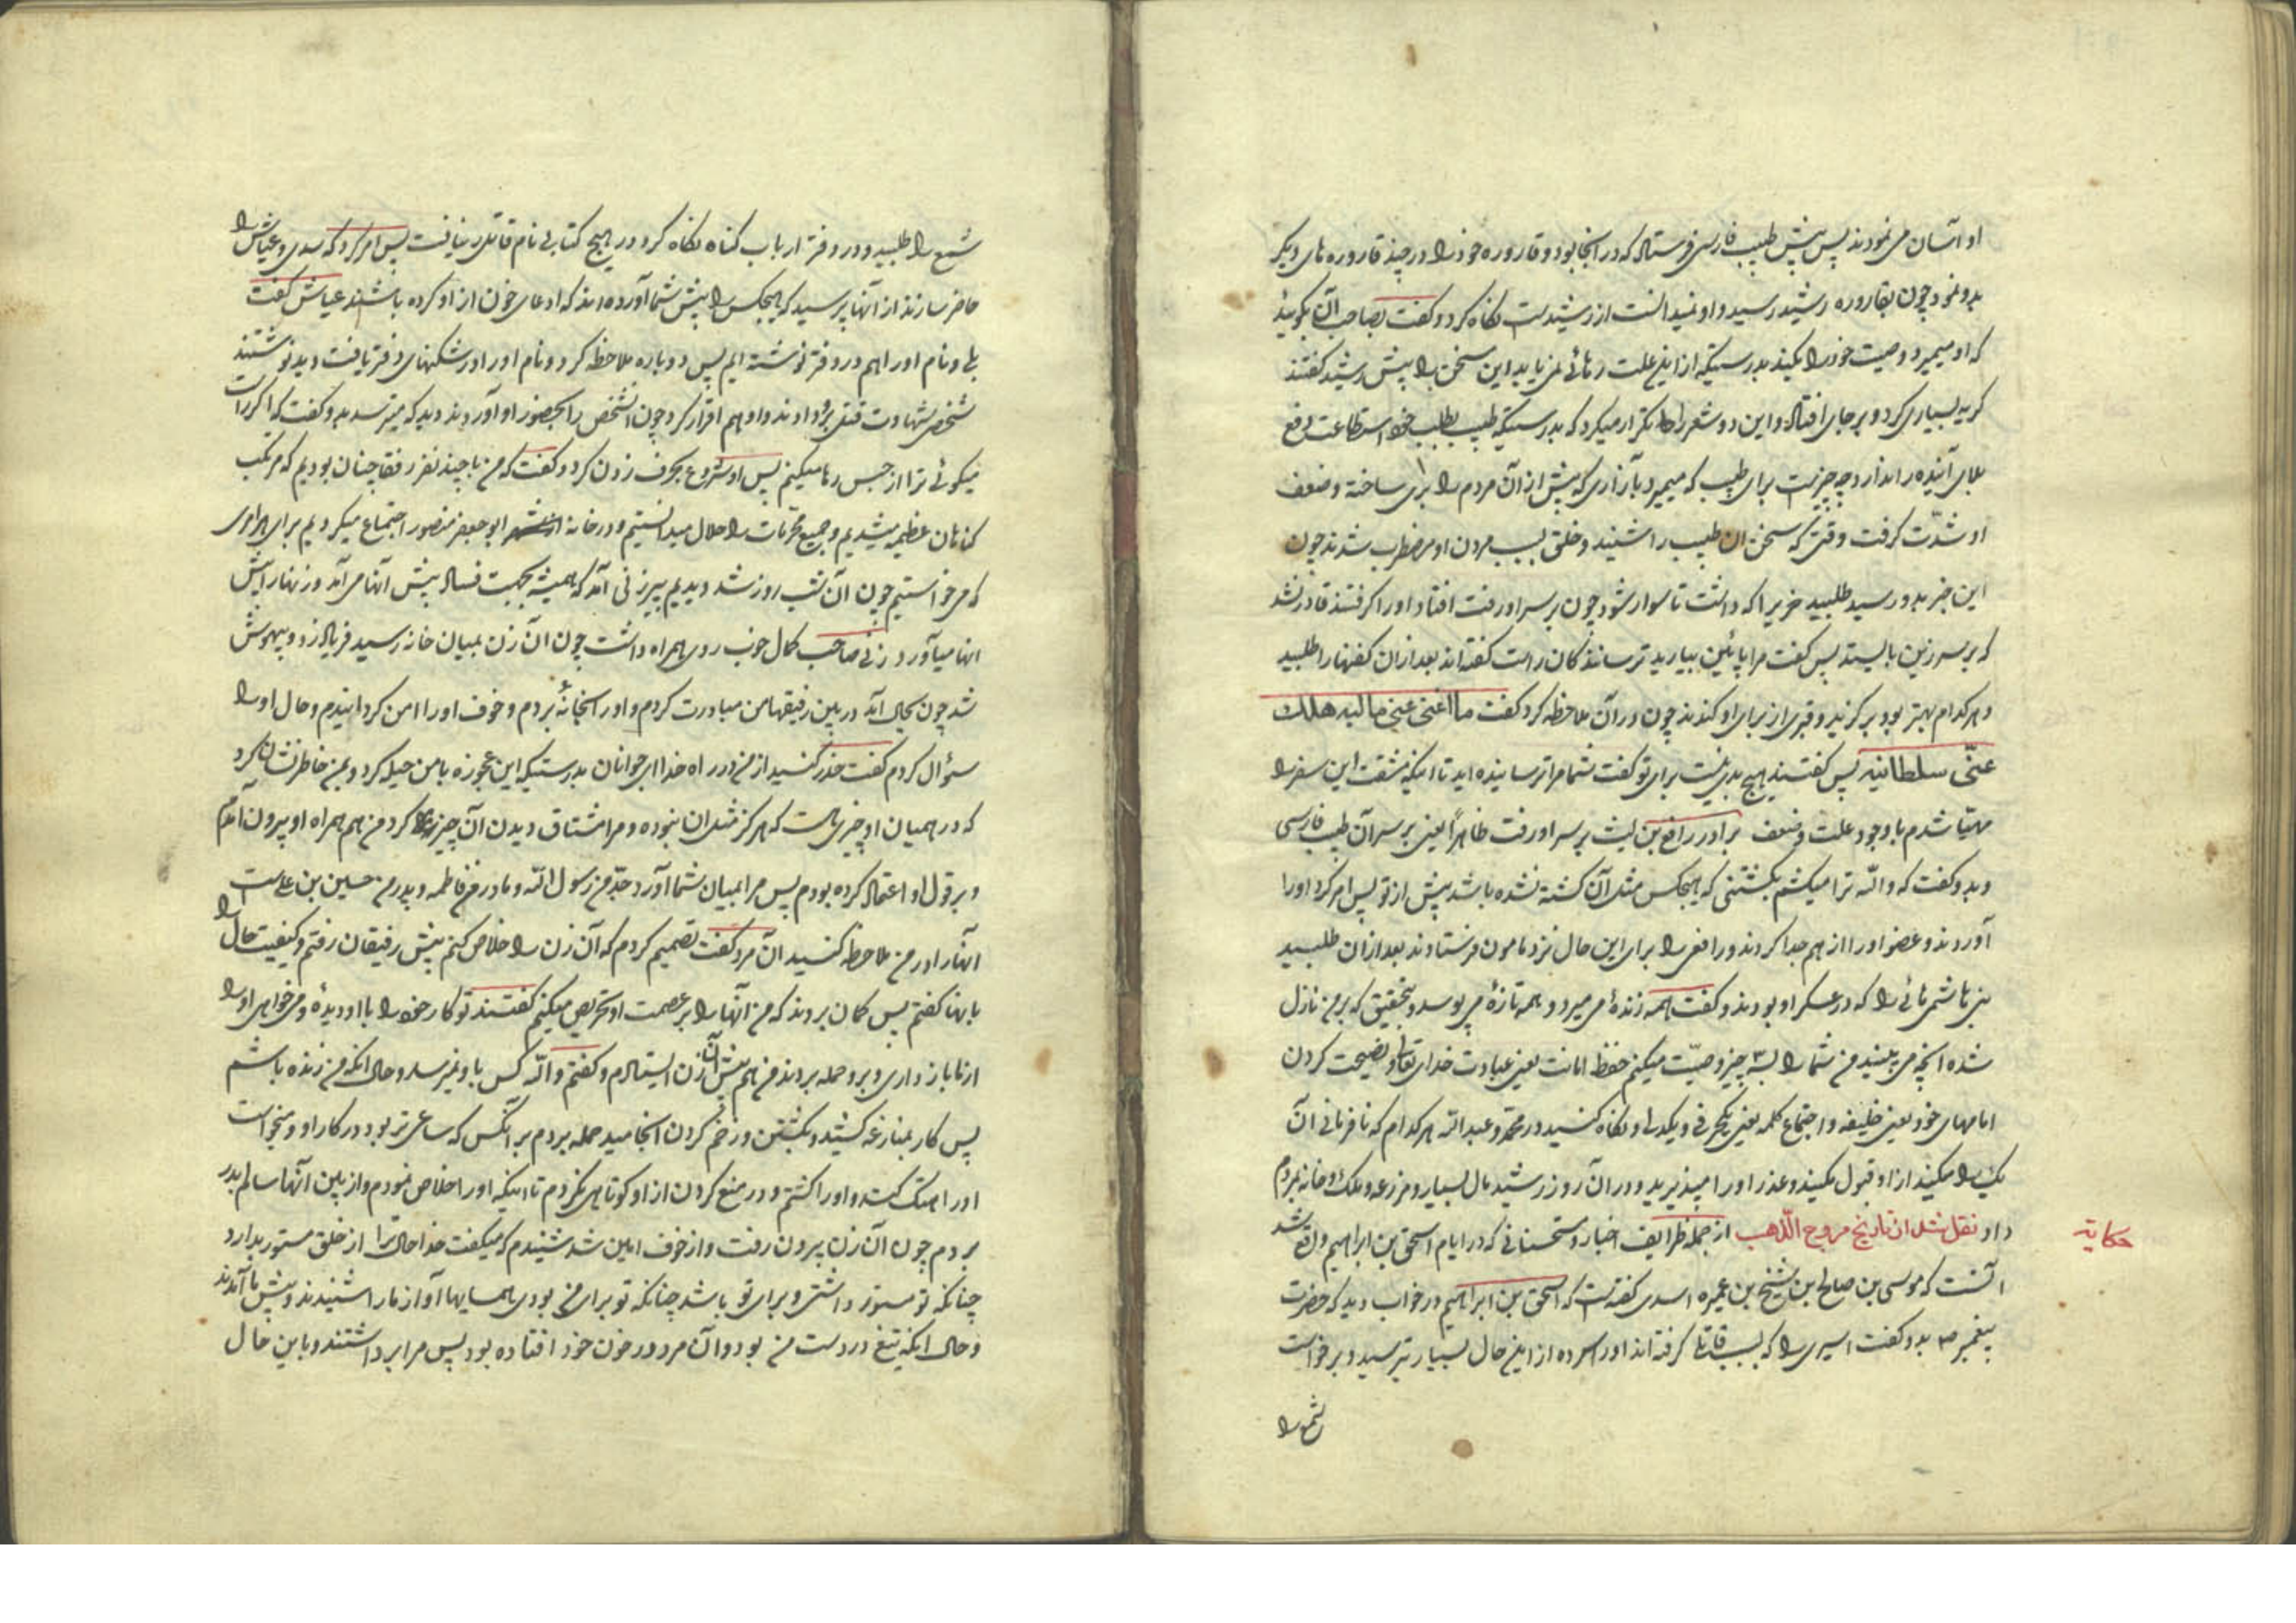 او آسان می نمودند پس پیش طبیب فارسی فرستاد که در انجا بود و قاروره خود را در چند قاروره های دیگر
بدو نمود چون بقاروره رشید رسید و او نمیدانست از رشیدست نگاه کرد و گفت بصاحب آن بگوئید
که او میمیرد وصیت خود را بکند بدرستیکه از اینعلت رهائی نمی یابد این سخن را پیش رشید گفتند
گریه بسیاری کرد و بر جای افتاد و این دو شعر را تکرار میکرد که بدرستیکه طبیب بطلب خود استطاعت دفع
بلای آینده را ندارد چه چیزست برای طبیب که میمیرد بآزاری که پیش از آن مردم را بری ساخته و ضعف
او شدّت گرفت وقتی که سخن ان طبیب را شنید و خلق بسبب مردن او مضطرب شدند چون
این خبر بدو رسید طلبید خریرا که داشت تا سوار شود چون بر سر او رفت افتاد او را گرفتند قادر نشد
که بر سر زین بایستد پس گفت مرا پائین بیارید ترسانندگان راست گفته اند بعد از ان کفنها را طلبید
و هر کدام بهتر بود برگزید و قبری از برای او کندند چون در آن ملاحظه کرد گفت ما اغنی عنی مالیه هلک
عنّی سلطانیه پس گفتند هیچ بدی نیست برای تو گفت شما مرا ترسانیده اید تا اینکه مشقت این سفر را
مهیّا شدم با وجود علت و ضعف برادر رافع بن لیث بر سر او رفت ظاهراً یعنی بر سر آن طبیب فارسی
و بدو گفت که والله ترا میکشم بکشتنی که هیچکس مثل آن کشته نشده باشد پیش از تو پس امر کرد او را
آوردند و عضو او را از هم جدا کردند و رافعی را برای این حال نزد مامون فرستادند بعد از ان طلبید
بنی هاشمی هائی را که در عسکر او بودند و گفت همه زندۀ می میرد و همه تازۀ می پوسد و بتحقیق که بر من نازل
شده آنچه می بینید من شما را بسه چیز وصیّت میکنم حفظ امانت یعنی عبادت خدای تعالی و نصیحت کردن
امامهای خود یعنی خلیفه و اجتماع کلمه یعنی یکحرفی و یکدلی و نگاه کنید در محمد و عبدالله هر کدام که نافرمانی آن
یک را میکند از او قبول مکنید و عذر او را مپذیرید و در ان روز رشید مال بسیار و مزرعه و ملک و خانه بمردم
حکایة
داد نقل شد از تاریخ مروج الذهب از جمله ظرایف اخبار و مستحسناتی که در ایام اسحق بن ابراهیم واقع شد
آنست که موسی بن صالح ابن شیخ بن عمیره اسدی گفته است که اسحق بن ابراهیم در خواب دید که حضرت
پیغمبر ص بدو گفت اسیری را که بسبب قاتلی گرفته اند او را سر ده از اینحال بسیار ترسید و برخواست
شمع را
شمع را طلبید و در دفتر ارباب گناه نگاه کرد و در هیچ کتابی نام قاتلی نیافت پس امر کرد که سدی و عیاش را
حاضر سازند از آنها پرسید که هیچکس را پیش شما آورده اند که ادعای خون از او کرده باشند عیاش گفت
بلی و نام او را هم در دفتر نوشته ایم پس دوباره ملاحظه کرد و نام او را در شکنهای دفتر یافت دید نوشتند
شخصی شهادت قتلی برو دادند و او هم اقرار کرد چون آنشخص را بحضور او آوردند دید که میترسد بدو گفت که اگر راست
میگوئی ترا از حبس رها میکنم پس او شروع بحرف زدن کرد و گفت که من با چند نفر رفقا چنان بودیم که مرتکب
گناهان عظیمه میشدیم و جمیع محرمات را حلال میدانستیم و در خانه ابو جعفر منصور اجتماع میکردیم برای هر امری
که می خواستیم چون آن شب روز شد دیدیم پیرزنی آمد که همیشه بجهت فساد پیش آنها می آمد و زنها را پیش
انها میآورد زنی صاحب کمال خوب روی همراه داشت چون آن زن بمیان خانه رسید فریاد زد و بیهوش
شد چون بحال آمد در بین رفیقها من مبادرت کردم و او را بخانۀ بردم و خوف او را امن گردانیدم و حال او را
سؤال کردم گفت حذر کنید از من در راه خدا ای جوانان بدرستیکه این عجوزه با من حیله کرد و بمن خاطر نشان کرد
که در همیان او چیزی است که هرگز مثل ان نبوده و مرا مشتاق دیدن آن چیز کرد من هم همراه او بیرون آمدم
و بر قول او اعتماد کرده بودم پس مرا بمیان شما آورد جدّ من رسول الله و مادر من فاطمه و پدر من حسین بن علی است
آنها را در من ملاحظه کنید آن مرد گفت تصمیم کردم که آن زن را خلاص کنم پیش رفیقان رفتم و کیفیت حال را
بانها گفتم پس گمان بردند که من آنها را بر عصمت او تحریص میکنم گفتند تو کار خود را با او دیدۀ و می خواهی او را
از ما باز داری و برو حمله بردند من هم پیش آن زن ایستادم و گفتم والله کس باو نمیرسد و حال انکه من زنده باشم
پس کار بمنازعه کشید و بکشتن و زخم کردن انجامید حمله بردم بر آنکس که ساعی تر بود در کار او و میخواست
او را هتک کند و او را کشتم و در منع کردن از او کوتاهی نکردم تا اینکه او را خلاص نمودم و از بین آنها سالم بدر
بردم چون آن زن بیرون رفت و از خوف ایمن شد شنیدم که میگفت خدا حال ترا از خلق مستور بدارد
چنانکه تو مستور داشتی و برای تو باشد چنانکه تو برای من بودی همسایها آواز ما را شنیدند و پیش ما آمدند
و حال اینکه تیغ در دست من بود و آن مرد در خون خود افتاده بود پس مرا برداشتند و باین حال